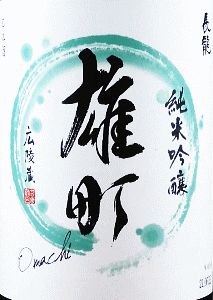 長龍
純米吟醸
雄町
広陵蔵
Omachi